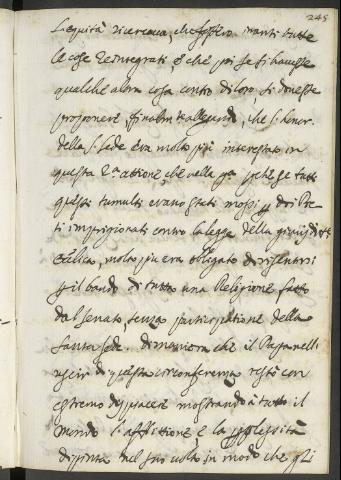 245
L'equità ricercava, che fossero inanti tutte
le cose reintegrati, e che poi se si havesse
qualche altra cosa contro di loro si dovesse
proponere finalmente allegando, che l'honor
della S. Sede era molto più interessato in
questa 2.a attione, che nella p.a perche se tutti
questi tumulti erano stati mossi p doi Pre-
ti imprigionati contro la legge della giurisditt.e
molto più era obligato di risentirsi
p il bando di tutta una Religione fatto
dal senato, senza participatione della
santa sede. Di maniera che il
uscir di questa conferenza restò con
estremo dispiacere mostrando à tutto il
mondo l'afflitione, e la perplessità
dipinta nel suo volto in modo che gli